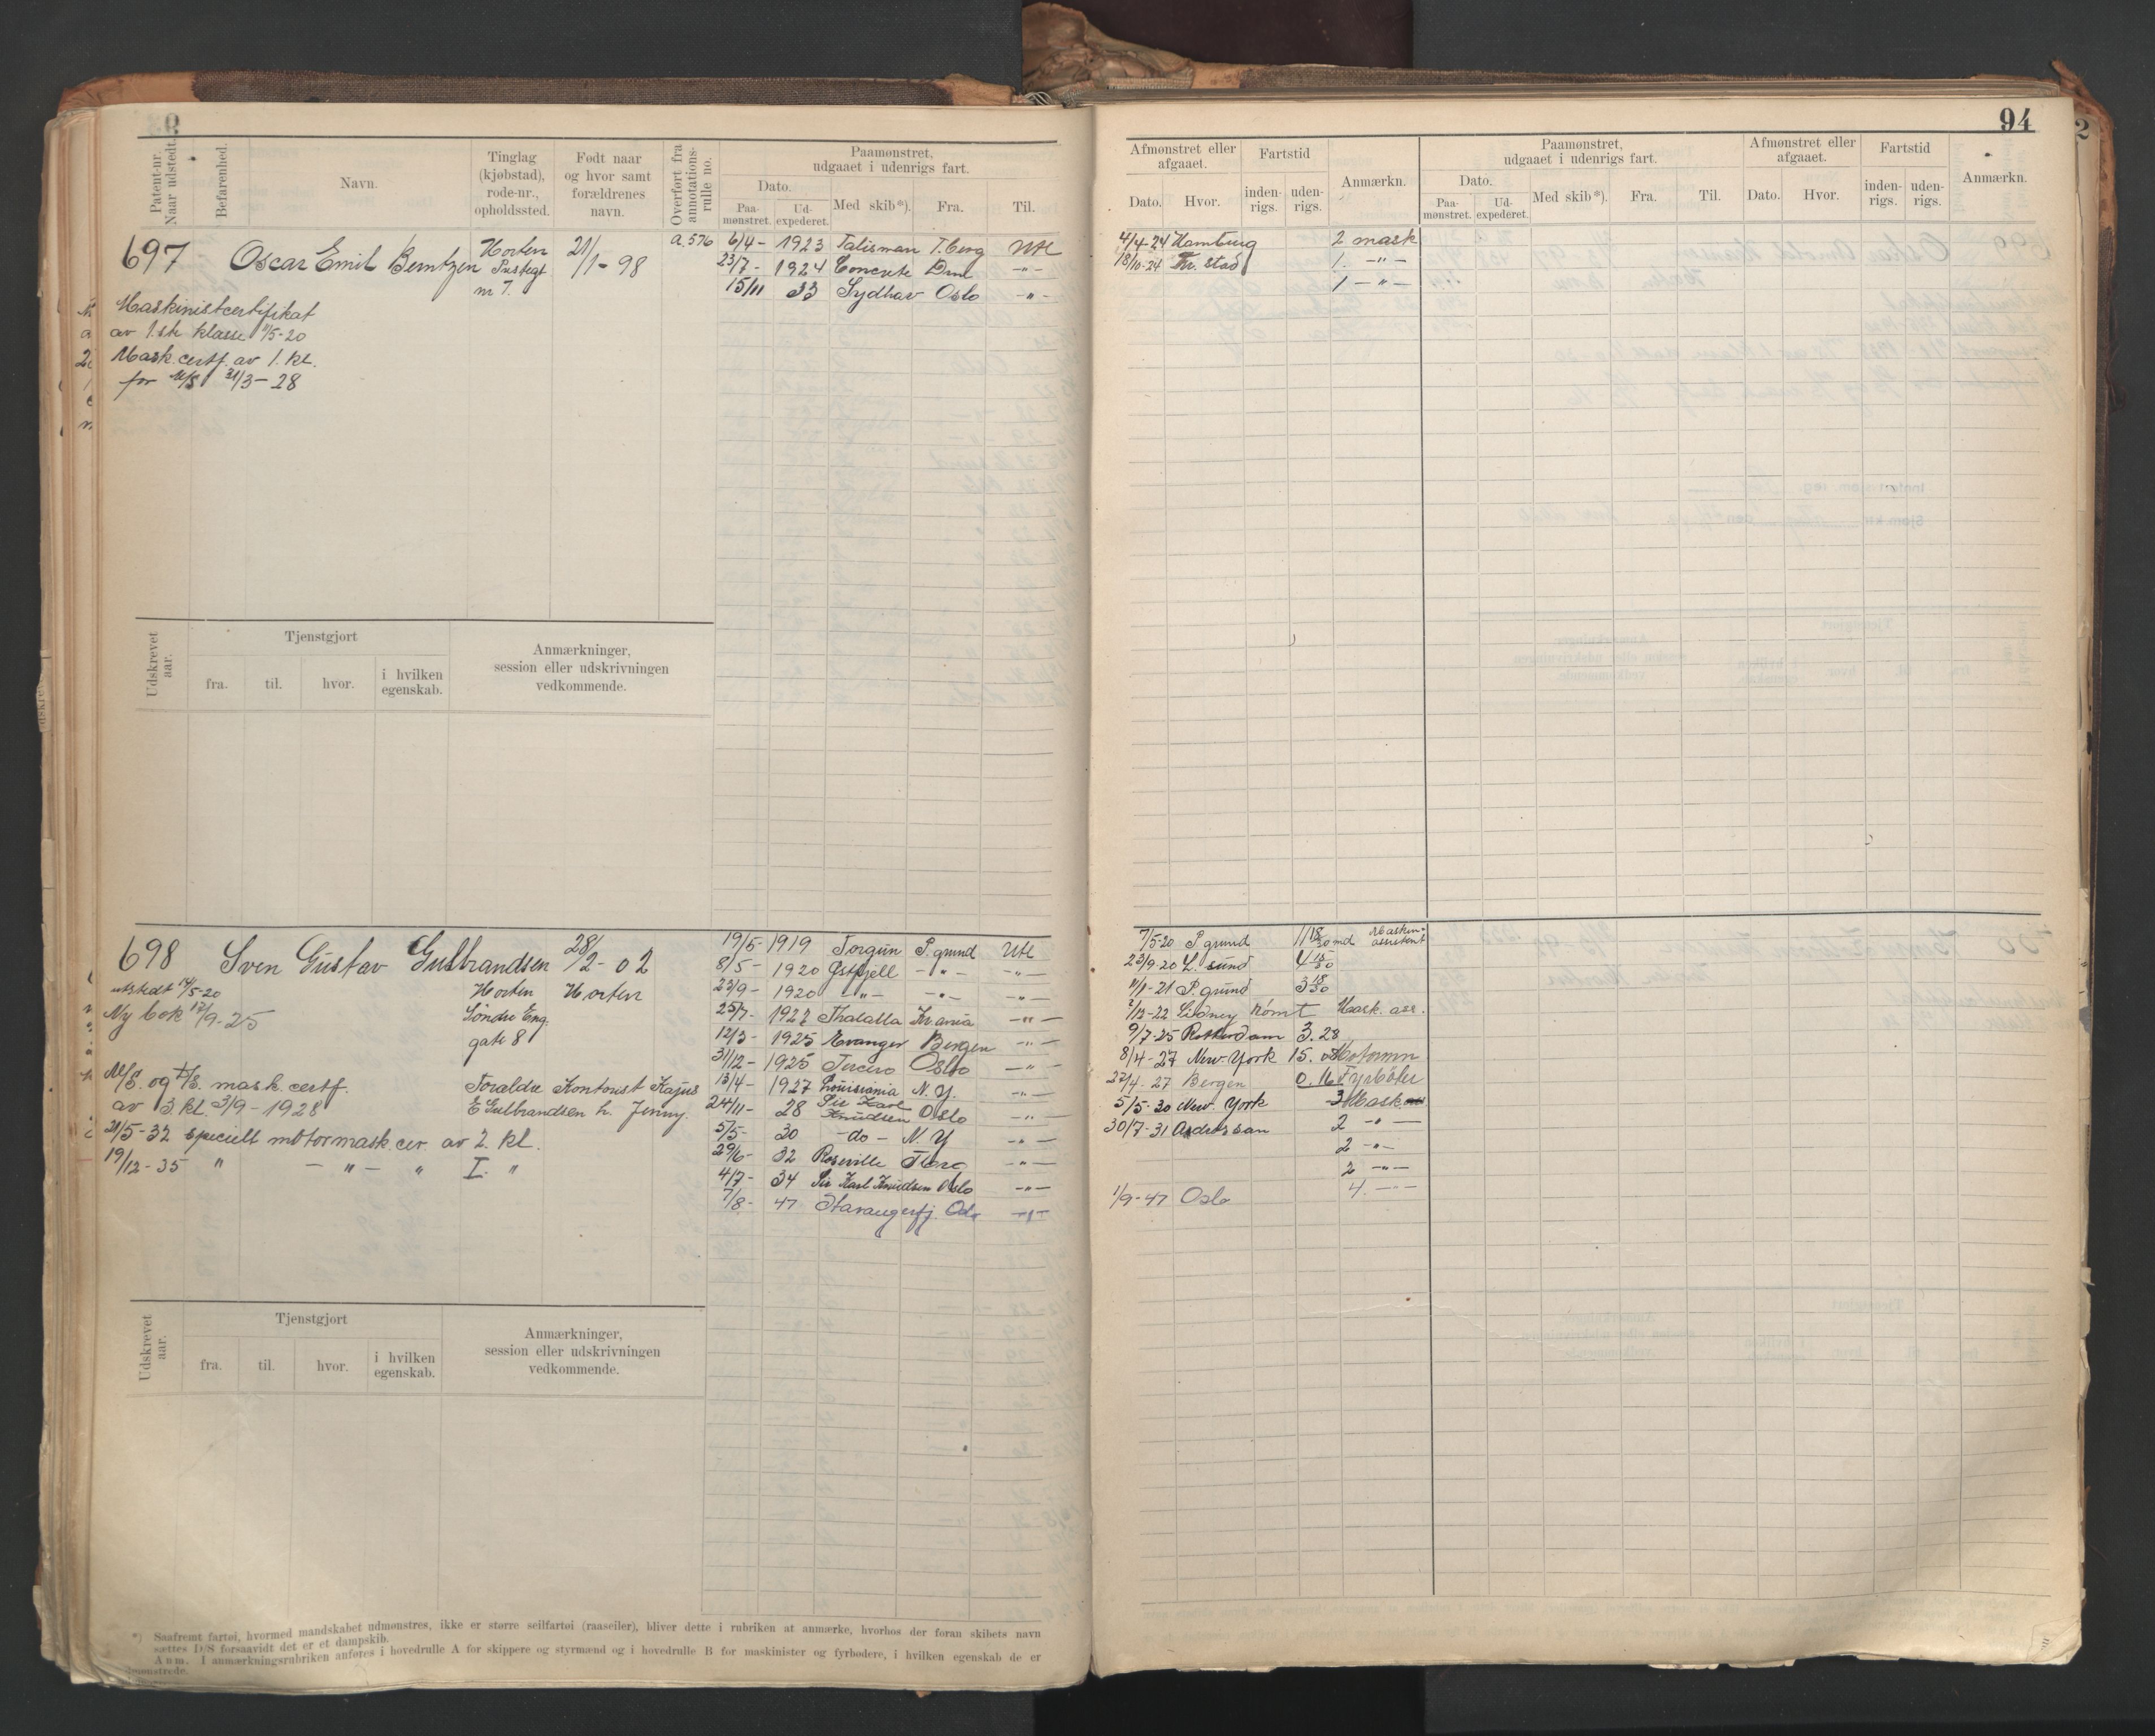 94
Patentnr. Naar udstedt.
Befarenhed.
Navn.
Tinglag (kjøbstad), rode-nr., opholdssted.
Født naar og hvor samt forældrenes navn.
Overført fra annotations-rulle no.
Paamønstret, udgaaet i udenrigs fart.
Dato.
Paa-mønstret.
Ud-expederet.
Med skib*).
Fra.
Til.
Afmønstret eller afgaaet.
Dato.
Hvor.
Fartstid
inden-rigs.
uden-rigs.
Anmærkn.
Paamønstret, udgaaet i udenrigs fart.
Dato.
Paa-mønstret.
Ud-expederet.
Med skib*).
Fra.
Til.
Afmønstret eller afgaaet.
Dato.
Hvor.
Fartstid
inden-rigs.
uden-rigs.
Anmærkn.
697 Oscar Emil Berntzen Horten 21/1-98 a.576
nr 7.
Maskinistcertifikat
av 1.ste klasse 1/5-20
Mask. certf. av 1. kl.
for M/S 31/3-28
6/4- 1923 Talisman T.berg Utl 4/4-24 Hamburg 2 mask
23/7- 1924 Concrete Drm -"- 18/10-24 Fr. stad 1. -"-
15/11 33 Sydhav Oslo -"- 1 -"-
Udskrevet aar.
Tjenstgjort
fra.
til.
hvor.
i hvilken egenskab.
Anmærkninger, session eller udskrivningen vedkommende.
698 Sven Gustav Gulbrandsen 28/2-02
utstedt 14/5-20 Horten Horten
Ny bok 12/9-25 Söndre Eng.
gate 8
M/S. og D/S. mask. certf. Foraldre Kontorist Kajus
av 3. kl. 3/9-1928 E Gulbrandsen h. Jenny.
21/5-32 speciell motormask.cer. av 2 kl.
19/12-35 " -"- " I. "
19/5- 1919 Torgun P.grund Utl 7/5-20 P.grund 11 18/30 md Maskin-assistent
8/5- 1920 Østfjell -"- -"- 23/9-20 L.sund 4 15/30
23/9- 1920 -"- -"- -"- 11/1-21 P.grund 3 18/30
25/7- 1922 Thalatta Kr.ania -"- 2/12-22 Sidney rømt Mask. ass.
12/3- 1925 Evanger Bergen -"- 9/7-25 Rotterdam 3.28
31/12- 1925 Tercero Oslo -"- 8/4-27 New-York 15. Motormn
13/4- 1927 Louisiania N.Y. -"- 27/4-27 Bergen 0.16 Fyrböter
24/11- 28 Sir Karl Knudsen Oslo -"- 5/5-30 New-York 3 Mask
5/5- 30 -do- N.Y -"- 30/7-31 Ardrossan 2 -"-
29/6- 32 Roseville Tbrg -"- 2 -"-
4/7- 34 Sir Karl Knudsen Oslo -"- 2 -"-
7/8- 47 Stavangerfj. Oslo -"- 1/9-47 Oslo 4. -"-
Udskrevet aar.
Tjenstgjort
fra.
til.
hvor.
i hvilken egenskab.
Anmærkninger, session eller udskrivningen vedkommende.
*) Saafremt fartøi, hvormed mandskabet udmønstres, ikke er større seilfartøi (raaseiler), bliver dette i rubriken at anmærke, hvorhos der foran skibets navn
sættes D/S forsaavidt det er et dampskib.
Anm. I anmærkningsrubriken anføres i hovedrulle A for skippere og styrmænd og i hovedrulle B for maskinister og fyrbødere, i hvilken egenskab de er